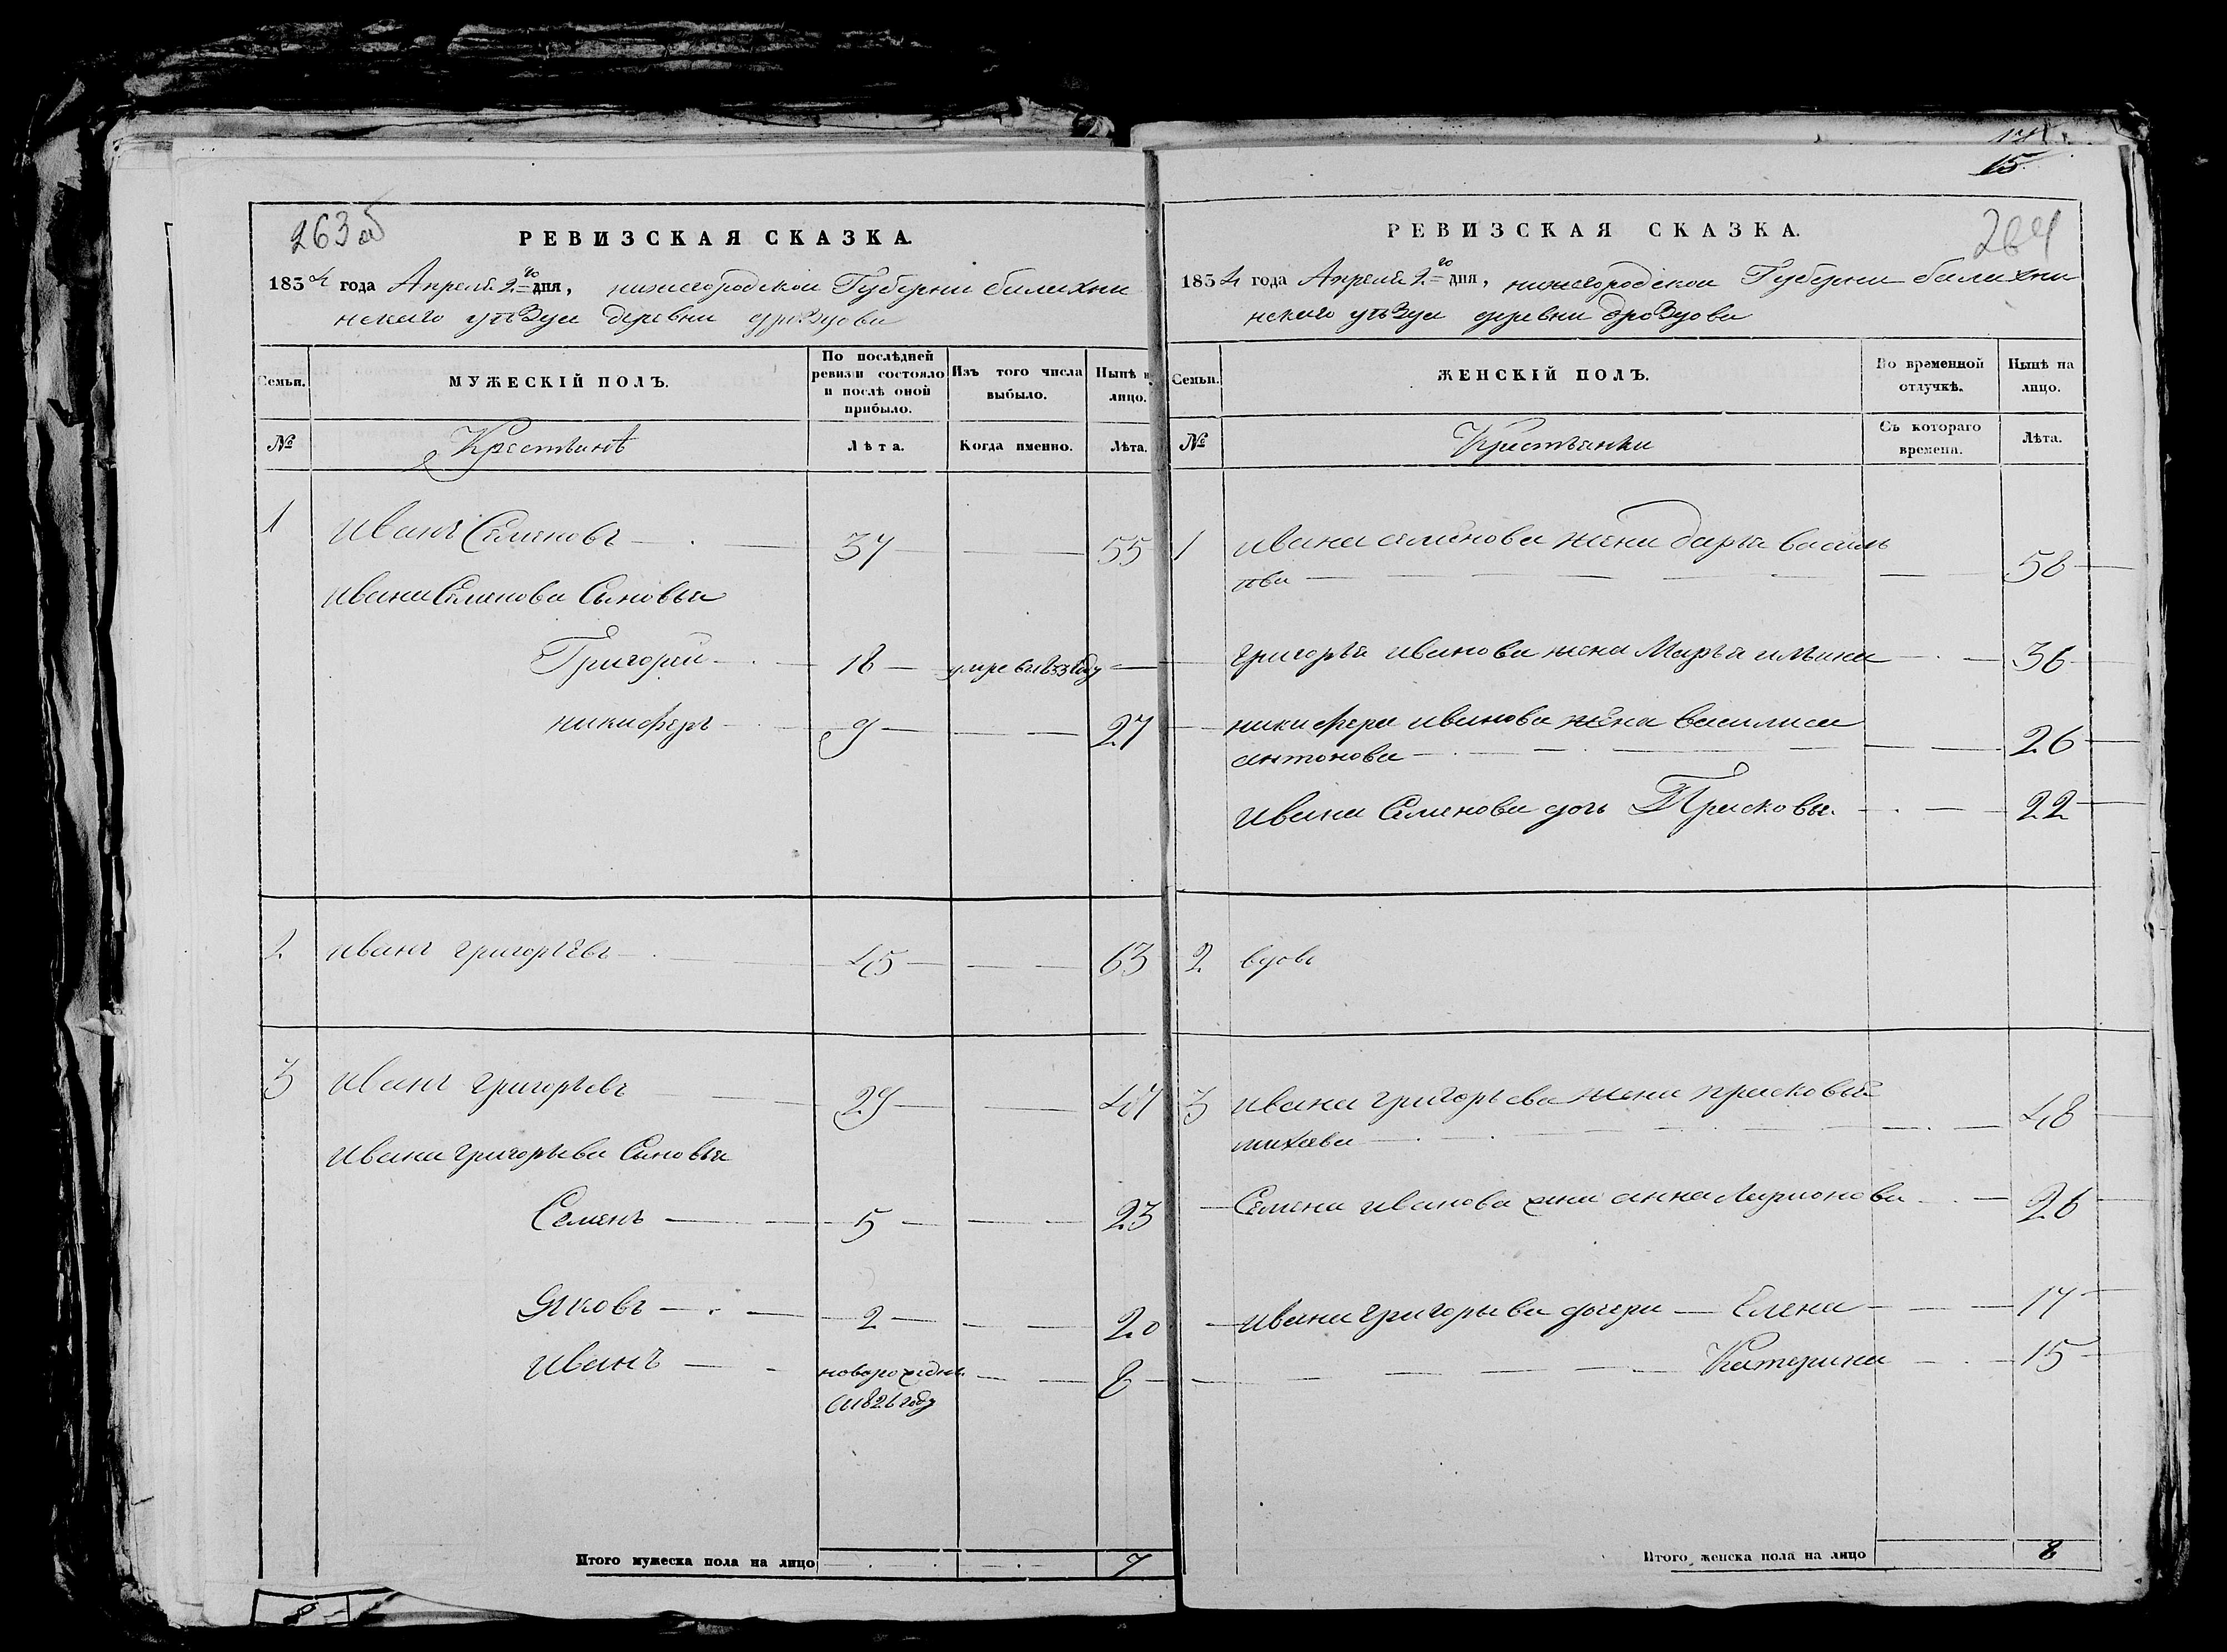 263 об
РЕВИЗСКАЯ СКАЗКА.
1834 года Апреля 2го дня, нижегородской Губерни балахни
нскаго уѣзда деревни дроздова
Семьи.
МУЖЕСКІЙ ПОЛЪ.
По послѣдней ревизіи состояло и послѣ оной прибыло.
Изъ того числа выбыло.
Нынѣ н лицо.
№
Крестьянѣ
Лѣта.
Когда именно.
Лѣта.
1 Иванъ Семеновъ 37 55
Ивана Семенова Сыновья
Григорей 18 умре въ 1833 году
никиферъ 9 27
2 иванъ григорьевъ 45 63
3 Иванъ григорьевъ 29 47
Ивана григорьева Сыновья
Семенъ 5 23
Яковъ 2 20
иванъ новорожден. 8
1826 году
Итого мужеска пола на лицо 7
15
264
РЕВИЗСКАЯ СКАЗКА.
1834 года Апреля 2го дня, нижегородской Губерни балахни
нскаго уѣзда деревни дроздова
Семьи.
ЖЕНСКІЙ ПОЛЪ.
Во временной отлучкѣ.
Нынѣ на лицо.
№
Крестьянки
Съ котораго времени.
Лѣта.
1 ивана семенова жена дарья василь
ѣва 58
григорья иванова жена Марья ильина 36
никифера иванова жена василиса
антонова 26
ивана Семенова дочь Прасковья 22
2 вдовъ
3 ивана григорьева жена прасковья
михаева 48
Семена иванова жена анна Ларионова 26
ивана григорьева дочери Елена 17
Катерина 15
Итого женска пола на лицо 8